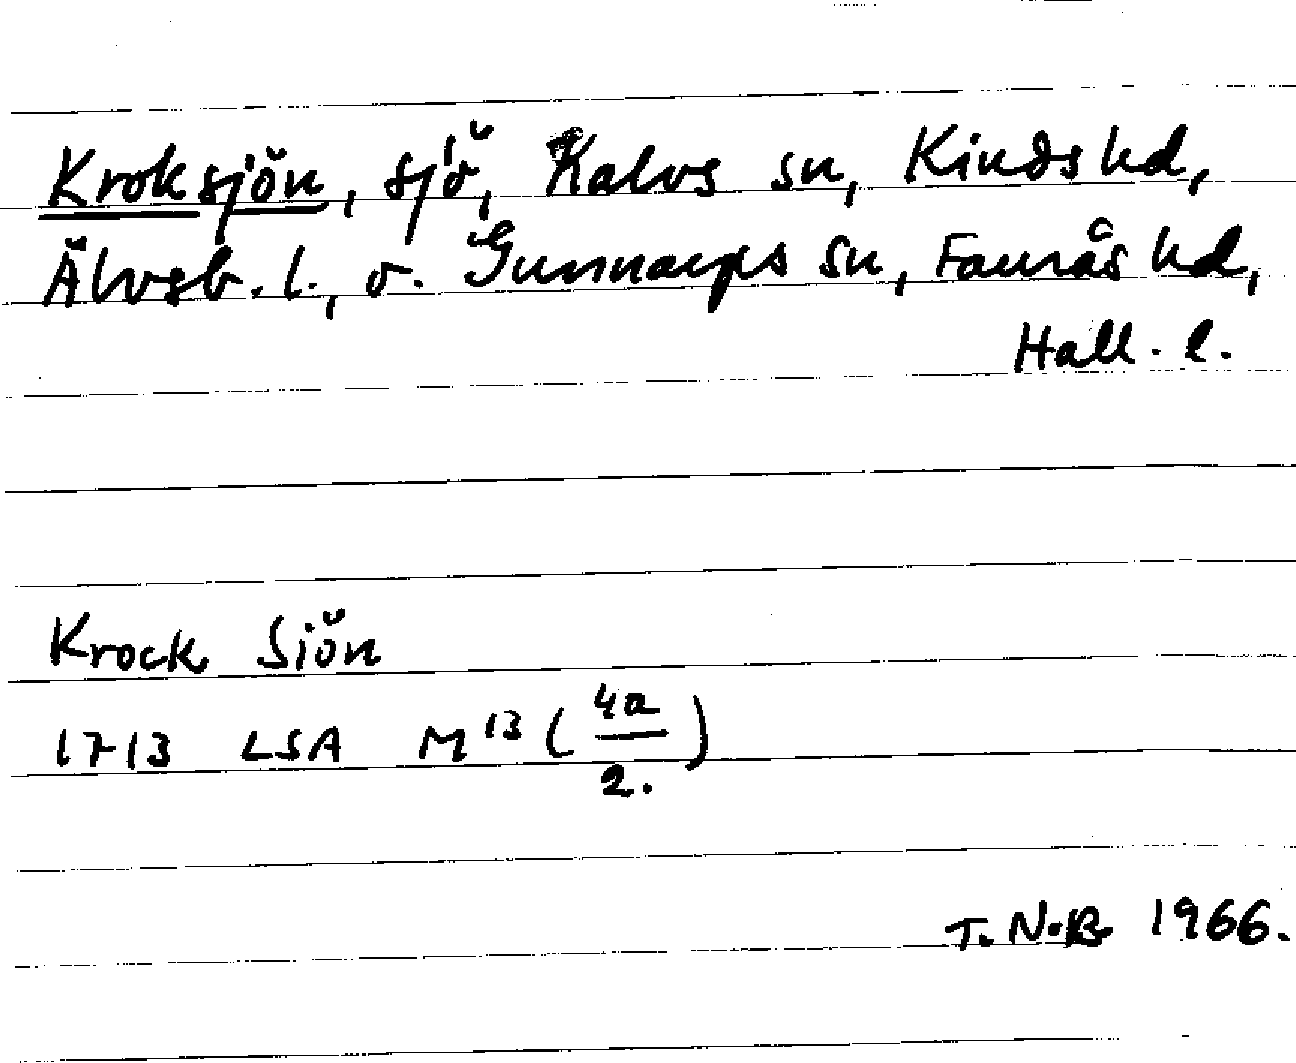 Kroksjön, sjö, Kalvs sn, Kinds hd,
Älvsb. l., o. Gunnarps sn, Faurås hd,
Hall. l.
Krock Siön
1713 LSA M¹³ (4a/2.)
T. N.B 1966.